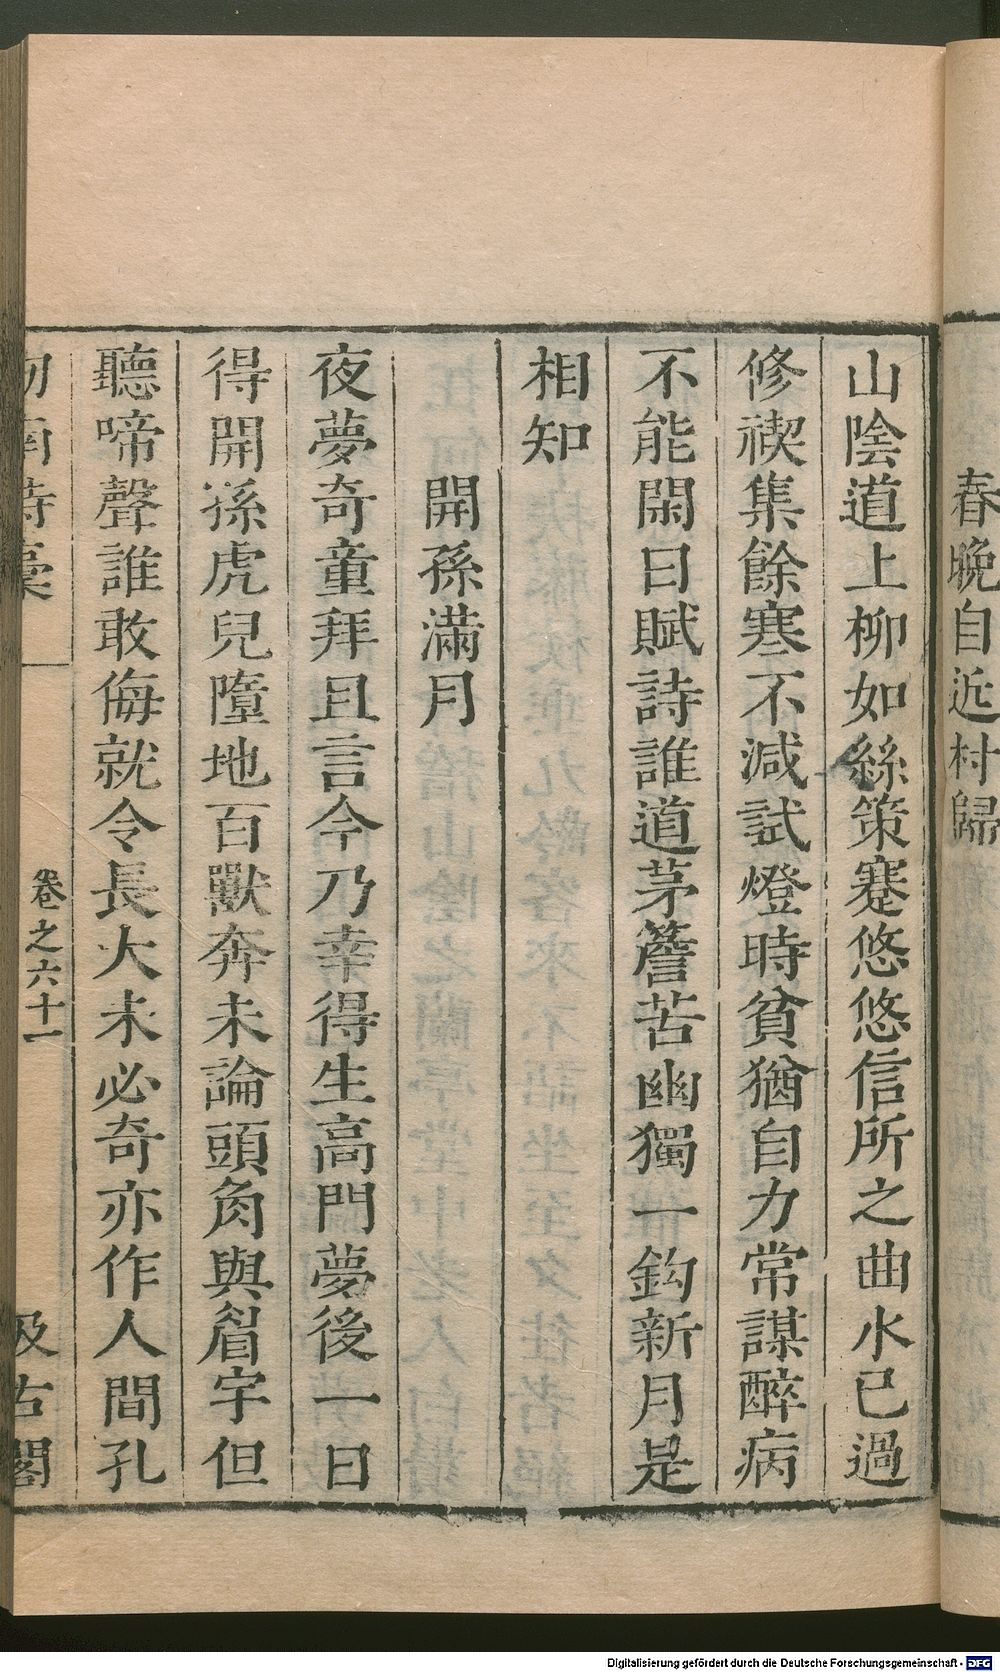 春晚自近村歸
山陰道上柳如絲策蹇悠悠信所之曲水已過
修禊集餘寒不減試燈時貧猶自力常謀醉病
不能閑日賦詩誰道茅簷苦幽獨一鈎新月是
相知
開孫滿月
夜夢奇童拜且言今乃幸得生高門夢後一日
得開孫虎兒墮地百獸奔未論頭角與眉宇但
聽啼聲誰敢侮就令長大未必奇亦作人間孔
劒南詩稾
卷之六十一
汲古閣
Digitalisierung gefördert durch die Deutsche Forschungsgemeinschaft - DFG